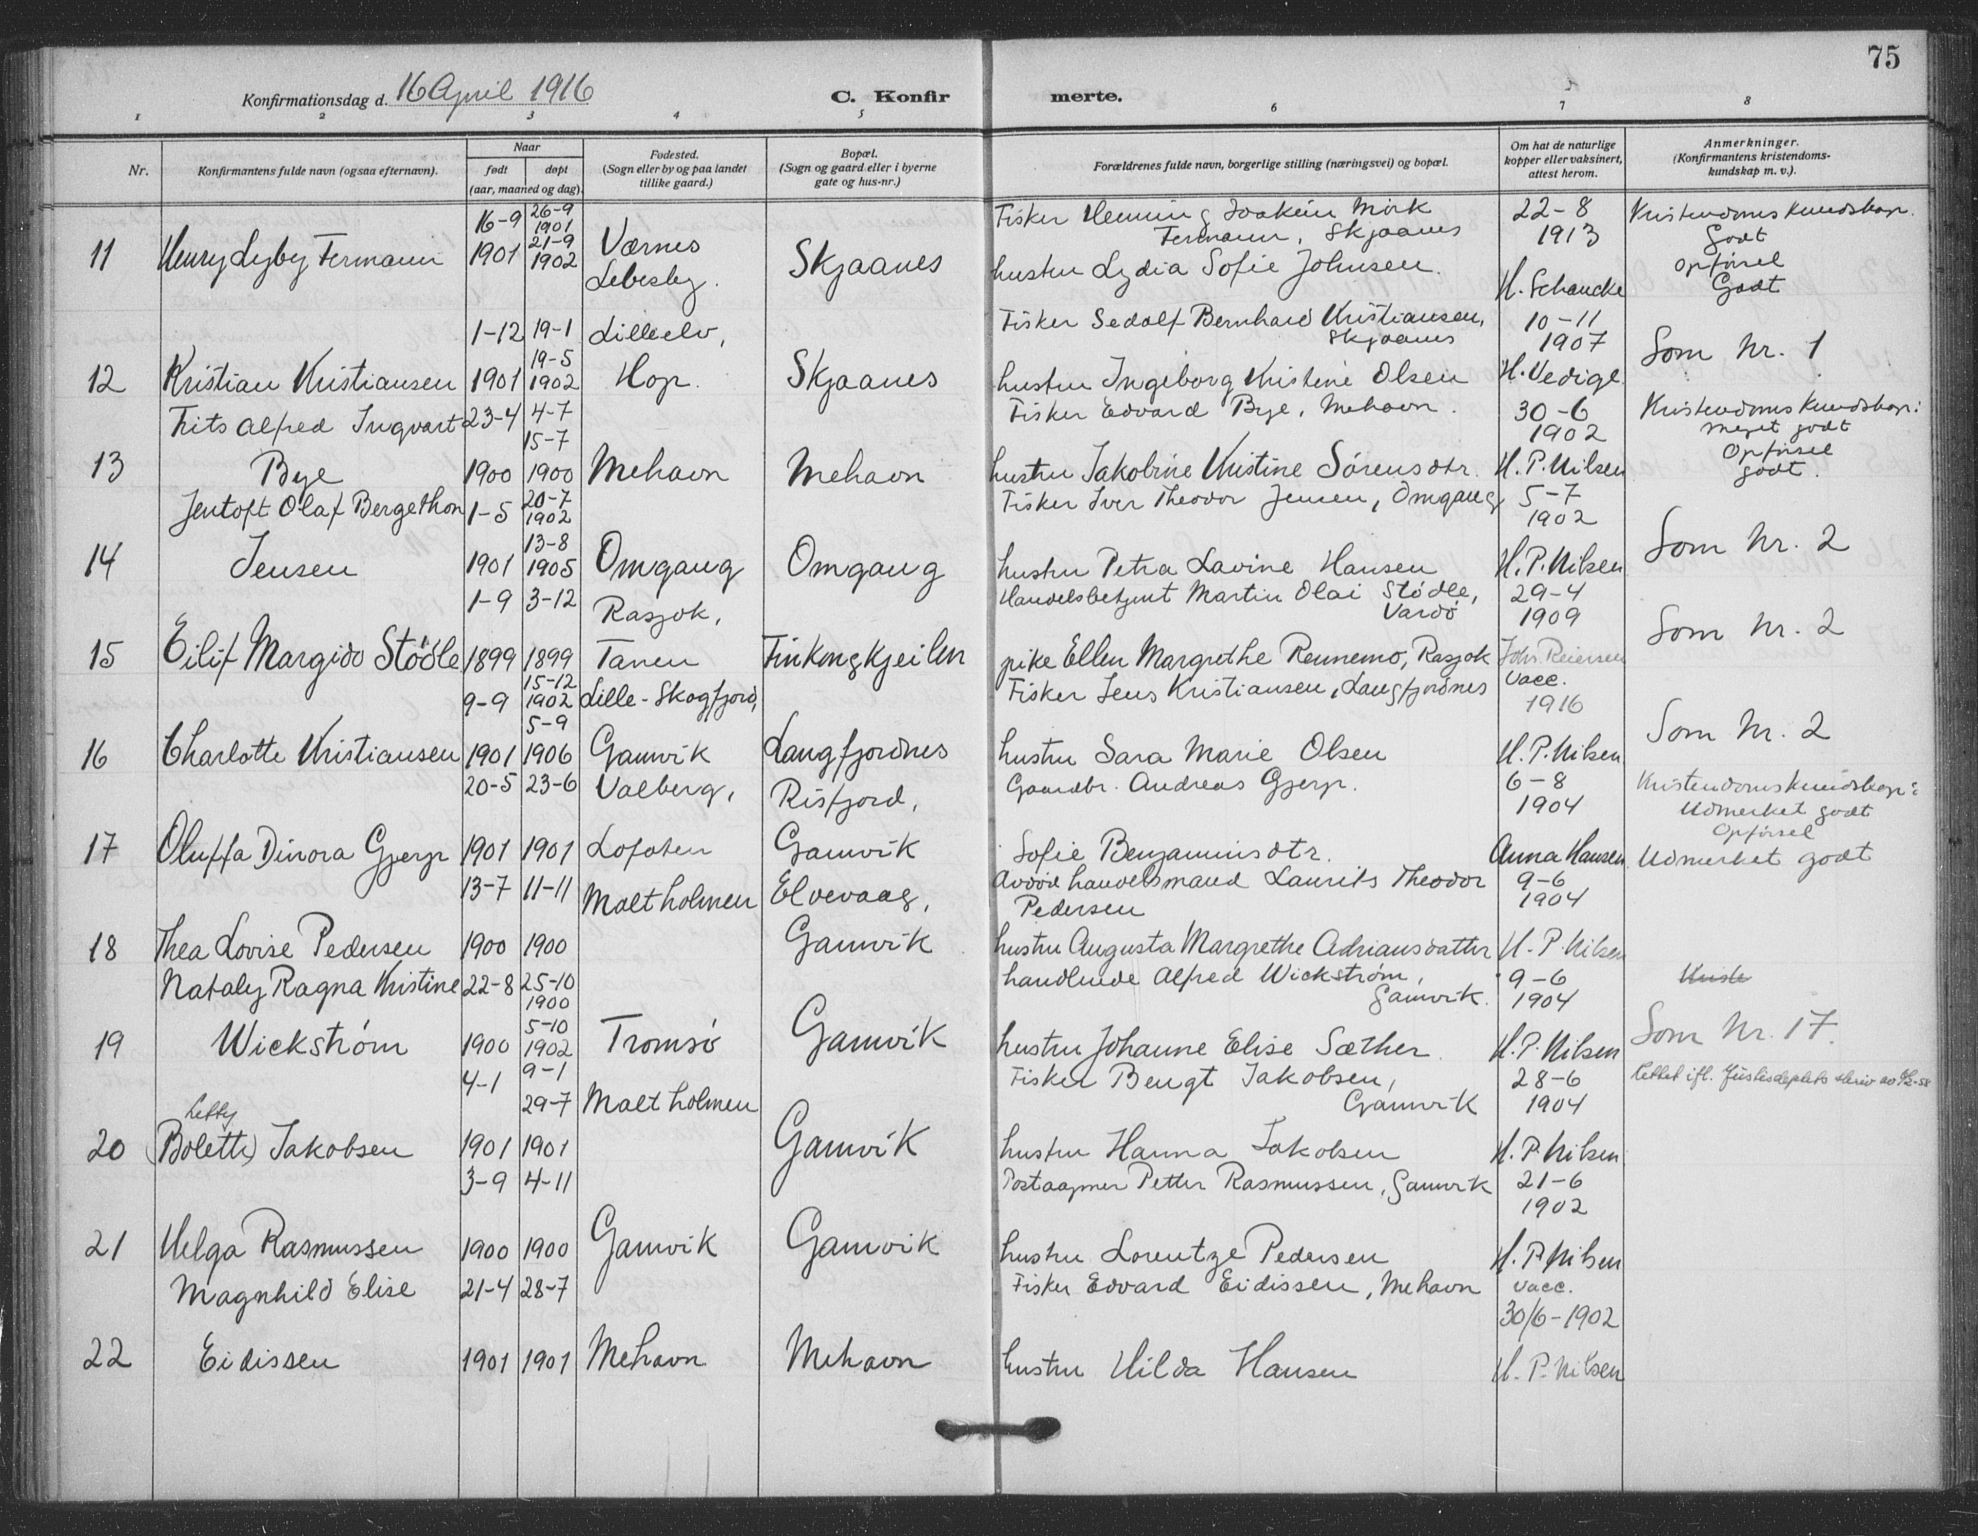 75
Konfirmationsdag d. 16 April 1916
C. Konfir merte.
1 2 3 4 5 6 7 8
Nr.
Konfirmantens fulde navn (ogsaa efternavn).
Naar
født
døpt
(aar, maaned og dag).
Fødested.
(Sogn eller by og paa landet
tillike gaard.)
Bopæl.
(Sogn og gaard eller i byerne
gate og hus-nr.)
Forældrenes fulde navn, borgerlige stilling (næringsvei) og bopæl.
Om hat de naturlige
kopper eller vaksinert,
attest herom.
Anmerkninger.
(Konfirmantens kristendoms-
kundskap m. v.).
11 Henry Lyby Fermann
16-9
1901
26-9
1901
21-9
1902
Værnes
Lebesby.
Skjaanes
Fisker Henning Joakim Mørk
Fermann, Skjaanes
hustru Lydia Sofie Johnsen.
22-8
1913
H. Schancke
Kristendomskundskap.
Godt
Opførsel
Godt
12 Kristian Kristiansen
1-12
1901
19-1
19-5
1902
Lilleelv,
Hop.
Skjaanes
Fisker Sedolf Bernhard Kristiansen,
Skjaanes
hustru Ingeborg Kristine Olsen
10-11
1907
H. Vedige
Som Nr. 1
Frits Alfred Ingvart
13 Bye
23-4
1900
4-7
15-7
1900
Mehavn
Mehavn
Fisker Edvard Bye, Mehavn.
hustru Jakobine Kristine Sørensdtr.
30-6
1902
H. P. Nilsen
Kristendomskundskap:
meget godt
Opførsel
godt.
Jentoft Olaf Bergethon
14 Jensen
1-5
1901
20-7
1902
13-8
1905
Omgang
Omgang
Fisker Iver Theodor Jensen, Omgang
hustru Petra Lavine Hansen
5-7
1902
H. P. Nilsen
Som Nr. 2
15 Eilif Margido Stödle
1-9
1899
3-12
1899
Rasjok,
Tanen
Finkongkjeilen
Handelsbetjent Martin Olai Stödle,
Vardö
pike Ellen Margrethe Rennemo, Rasjok
29-4
1909
Johs. Reiersen
Som Nr. 2
16 Charlotte Kristiansen
9-9
1901
15-12
1902
5-9
1906
Lille-Skogfjord,
Gamvik
Langfjordnes
Fisker Jens Kristiansen, Langfjordnes
hustru Sara Marie Olsen
Vacc.
1916
H. P. Nilsen
Som Nr. 2
17 Oluffa Dinora Gjerp
20-5
1901
23-6
1901
Valberg,
Lofoten
Risfjord,
Gamvik
Gaardbr. Andreas Gjerp.
Sofie Benjaminsdtr.
6-8
1904
Anna Hansen
Kristendomskundskap:
Udmerket godt
Opførsel
Udmerket godt
18 Thea Lovise Pedersen
13-7
1900
11-11
1900
Maltholmen
Elvevaag,
Gamvik
Avdöd handelsmand Laurits Theodor
Pedersen
hustru Augusta Margrethe Adriansdatter
9-6
1904
H. P. Nilsen
Nataly Ragna Kristine
19 Wickstrøm
22-8
1900
25-10
1900
5-10
1902
Tromsø
Gamvik
handlende Alfred Wickstrøm,
Gamvik.
hustru Johanne Elise Sæther
9-6
1904
H. P. Nilsen
Som Nr. 17.
Letty
20 (Bolette) Jakobsen
4-1
1901
9-1
29-7
1901
Maltholmen
Gamvik
Fisker Bengt Jakobsen,
Gamvik
hustru Hanna Jakobsen
28-6
1904
H. P. Nilsen
21 Helga Rasmussen
3-9
1900
4-11
1900
Gamvik
Gamvik
Postaapner Petter Rasmussen, Gamvik
hustru Lorentze Pedersen
21-6
1902
H. P. Nilsen
Magnhild Elise
22 Eidissen
21-4
1901
28-7
1901
Mehavn
Mehavn
Fisker Edvard Eidissen, Mehavn
hustru Hilda Hansen
Vacc.
30/6-1902
H. P. Nilsen